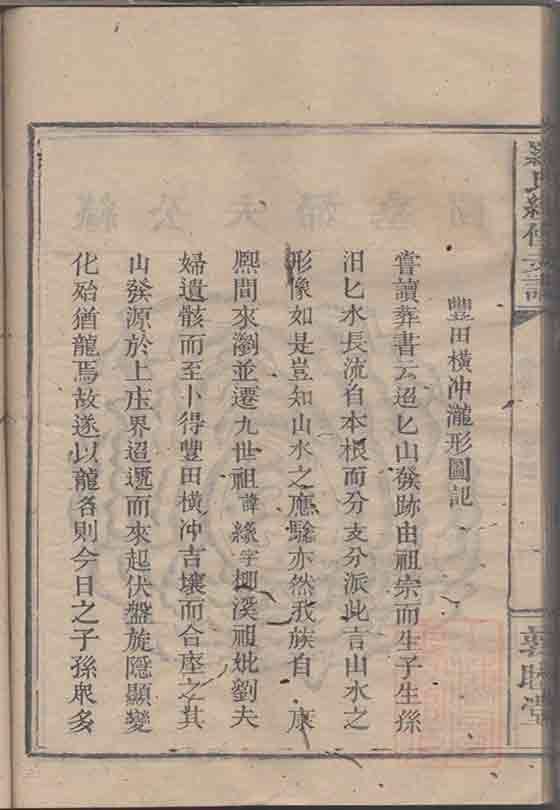 豐田橫冲瀧形圖記
嘗讀葬書云迢匕山發跡由祖宗而生子生孫
汨匕水長流自本根而分支分派此言山水之
形像如是豈知山水之應騐亦然我族自 康
熈間來瀏並遷九世祖諱緣字柳溪祖妣劉夫
婦遺骸而至卜得豐田橫冲吉壤而合塟之其
山發源於上庄界迢遞而來起伏盤旋隱顯變
化殆猶龍焉故遂以龍名則今日之子孫衆多
氏續修支譜
睦堂